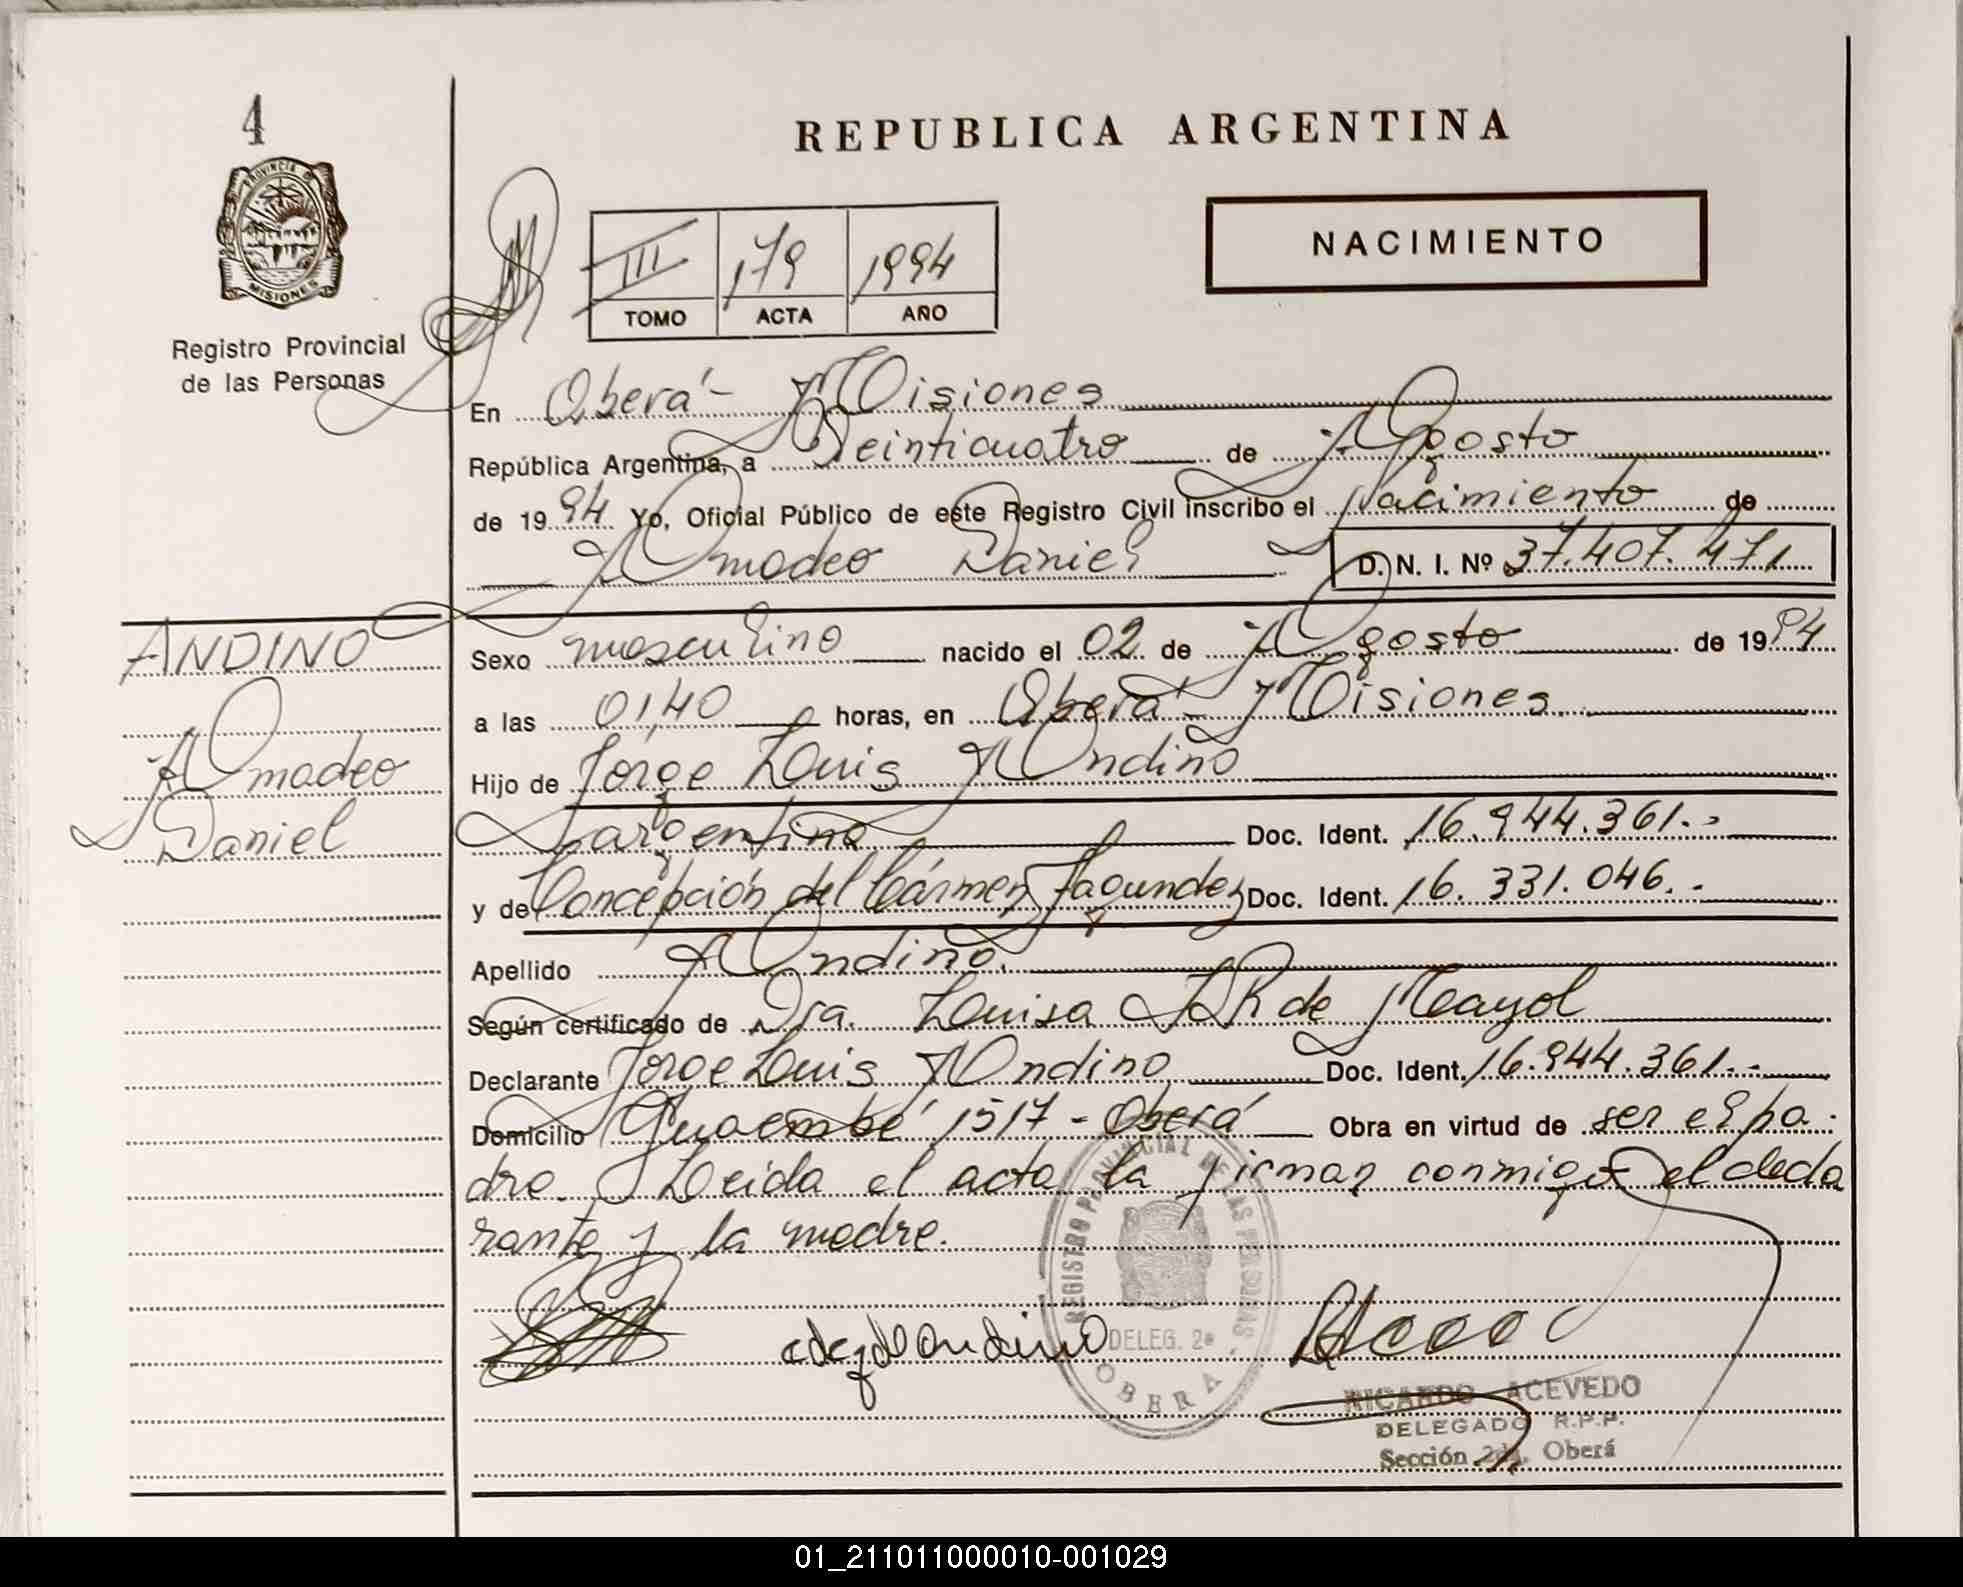 4
PROVINCIA DE
MISIONES
Registro Provincial
de las Personas
REPUBLICA ARGENTINA
NACIMIENTO
III 179 1994
TOMO ACTA AÑO
En Oberá - Misiones
República Argentina, a Veinticuatro de Agosto
de 1994 Yo, Oficial Público de este Registro Civil inscribo el Nacimiento de
Amadeo Daniel D. N. I. Nº 37.407.471
ANDINO
Amadeo
Daniel
Sexo masculino nacido el 02 de Agosto de 1994
a las 01,40 horas, en Oberá - Misiones
Hijo de Jorge Luis Andino
argentina Doc. Ident. 16.944.361.-
y de Concepción del Cármen Fagundez Doc. Ident. 16.331.046.-
Apellido Andino.
Según certificado de Dra. Luisa R de Mayol
Declarante Jorge Luis Andino Doc. Ident. 16.944.361.-
Domicilio Guaembé 1517 - Oberá Obra en virtud de ser el pa-
dre. Leida el acta la firman conmigo el decla
rante y la madre.
REGISTRO PROVINCIAL DE LAS PERSONAS
DELEG. 2ª
OBERA
RICARDO ACEVEDO
DELEGADO R.P.P.
Sección 2da. Oberá
01_211011000010-001029